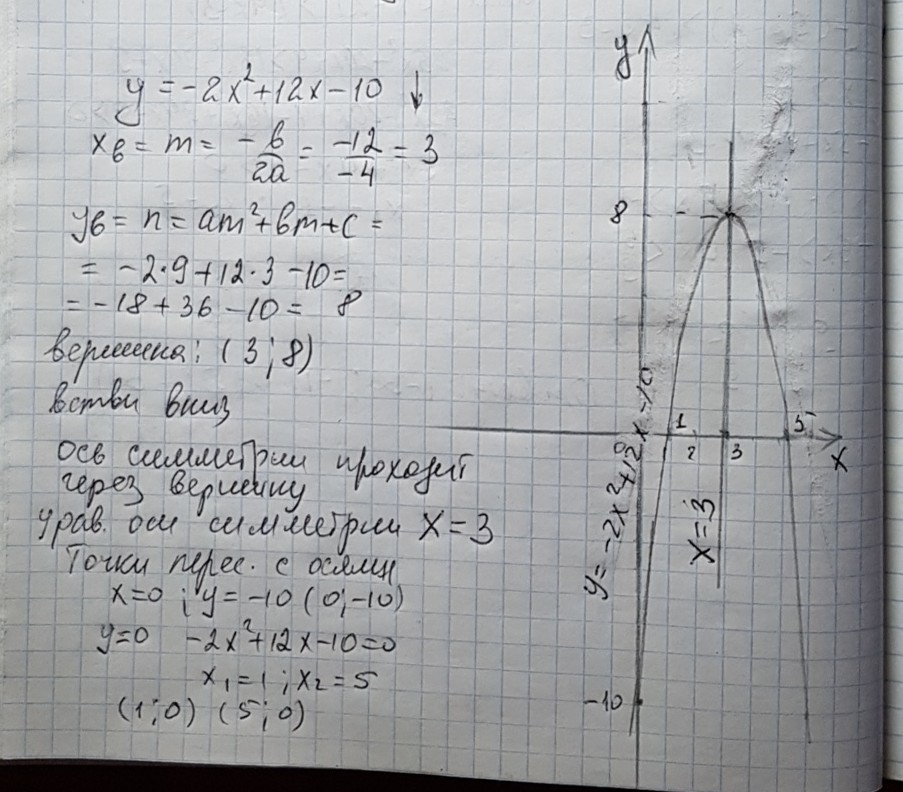 y = -2x²+12x-10 ↓
xв = m = -в/2a = -12/-4 = 3
yв = n = am²+вm+c =
= -2·9+12·3-10=
= -18+36-10= 8
вершина: (3;8)
встви вниз
ось симметрии проходит
через вершину
урав. оси симметрии x=3
Точки перес. с осями
x=0 ; y=-10 (0;-10)
y=0 -2x²+12x-10=0
x₁=1 ; x₂=5
(1;0) (5;0)
y
8
1
5
0
2
3
x
y=-2x²+12x-10
x=3
-10